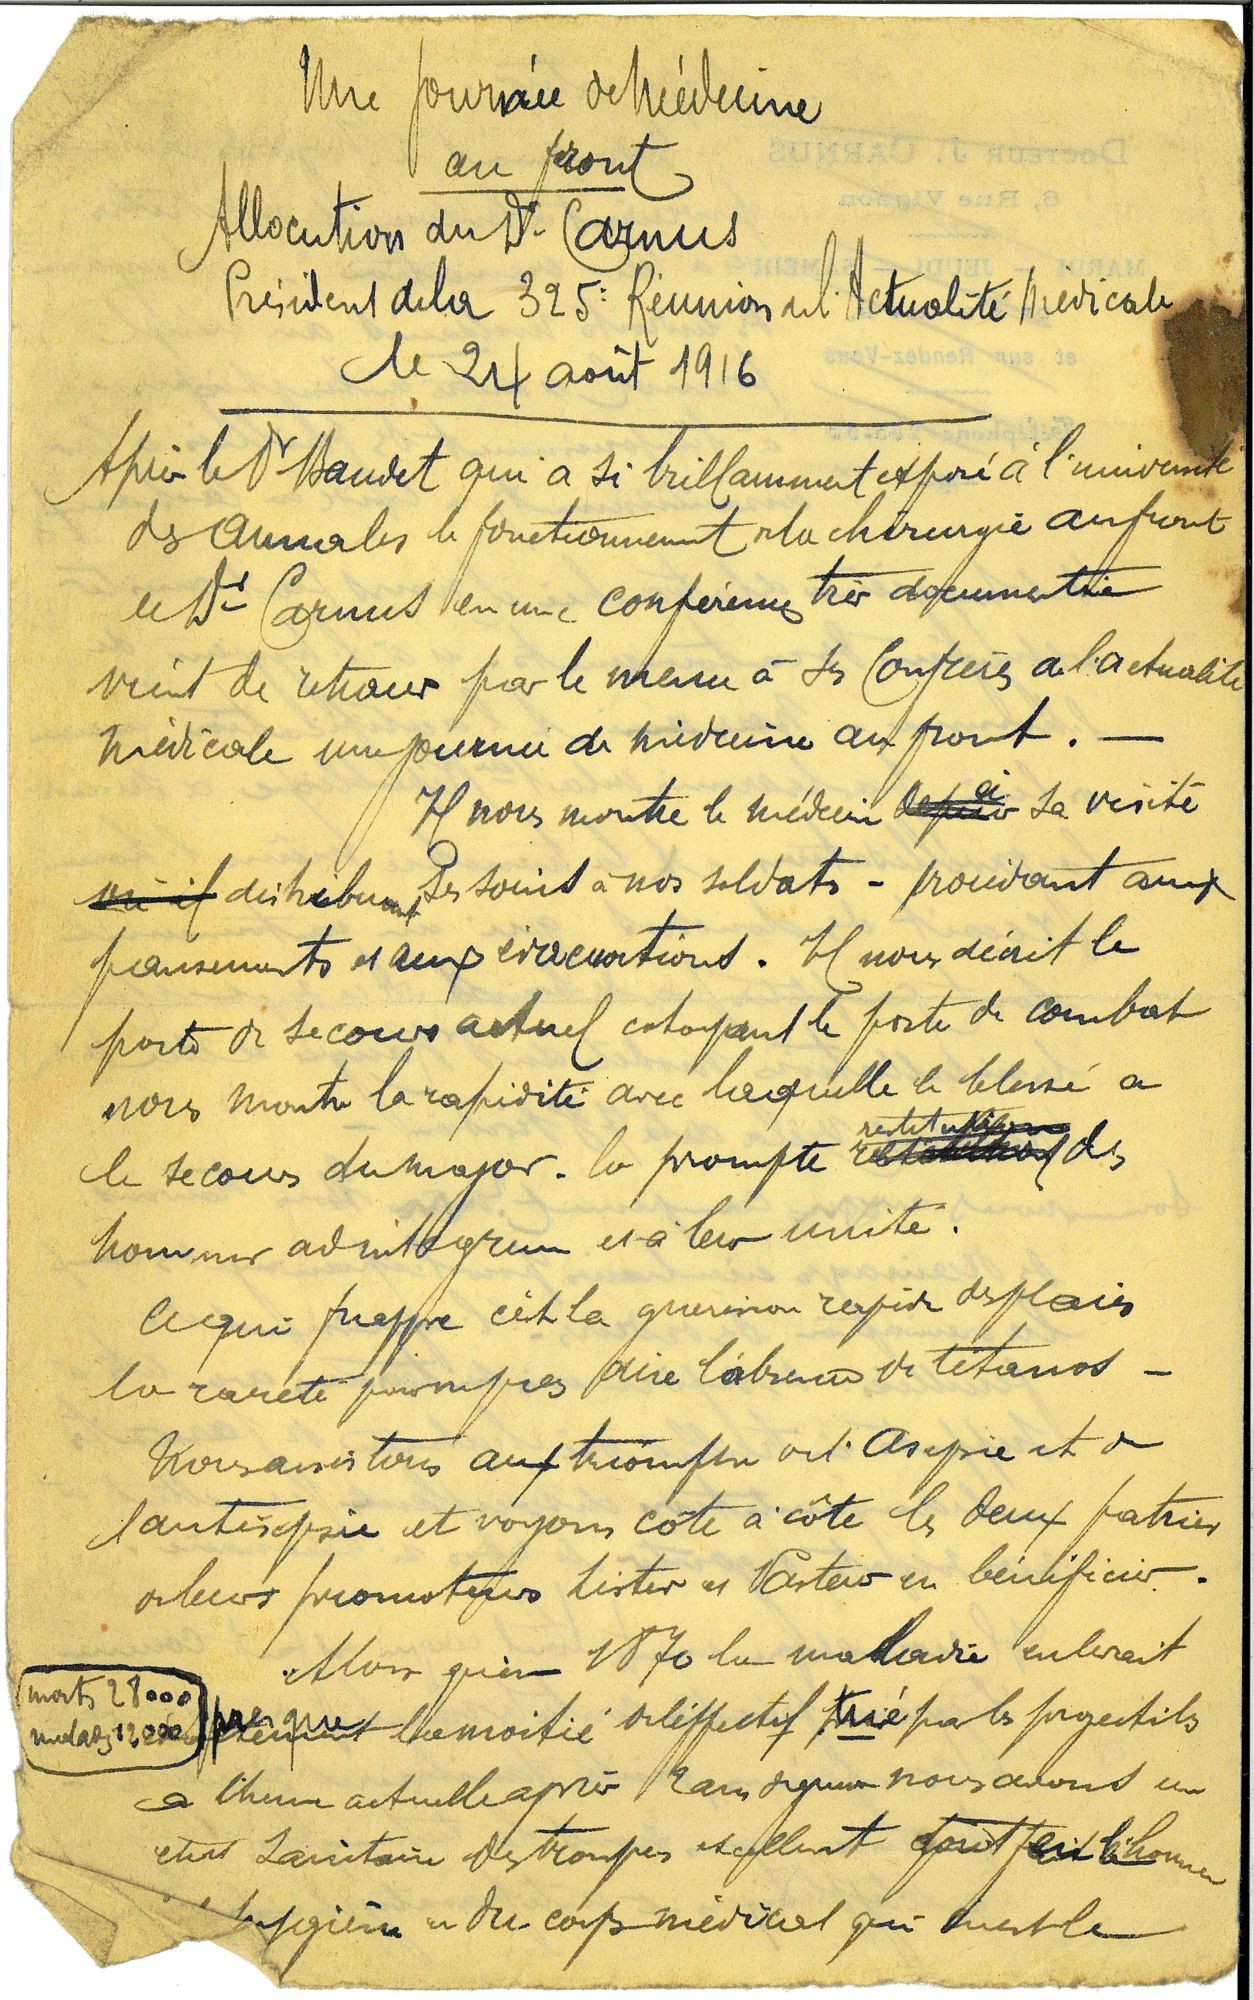 Une journée de Médecine
au front
Allocution du Dr Carnus
Président de la 325e Réunion de l'Actualité Médicale
le 24 août 1916
Après le Dr Baudet qui a si brillamment exposé à l'université
des Annales le fonctionnement de la chirurgie au front
le Dr Carnus en une conférence très documentée
vient de retracer par le menu à ses Confrères de l'actualité
médicale une journée de médecine au front. —
Il nous montre le médecin depuis à sa visite
où il distribuant ses soins à nos soldats - procédant aux
pansements et aux évacuations. Il nous décrit le
poste de secours actuel cotoyant le poste de combat
nous montre la rapidité avec laquelle le blessé a
le secours du major. la prompte restitution des
hommes ad integrum et à leur unité.
Ce qui frappe c'est la guérison rapide des plaies
la rareté pour ne pas dire l'absence de tétanos —
Nous assistons au triomphe de l'Asepsie et de
l'antisepsie et voyons côte à côte les deux patries
de leurs promoteurs Lister et Pasteur en bénéficier.
Alors qu'en 1870 la maladie enlevait
morts 28000
malades 12,000
presque la moitié de l'effectif tué par les projectiles
à l'heure actuelle après 2 ans de guerre nous avons un
état sanitaire des troupes excellent dont fait l'honneur
hygiène et du corps médical qui